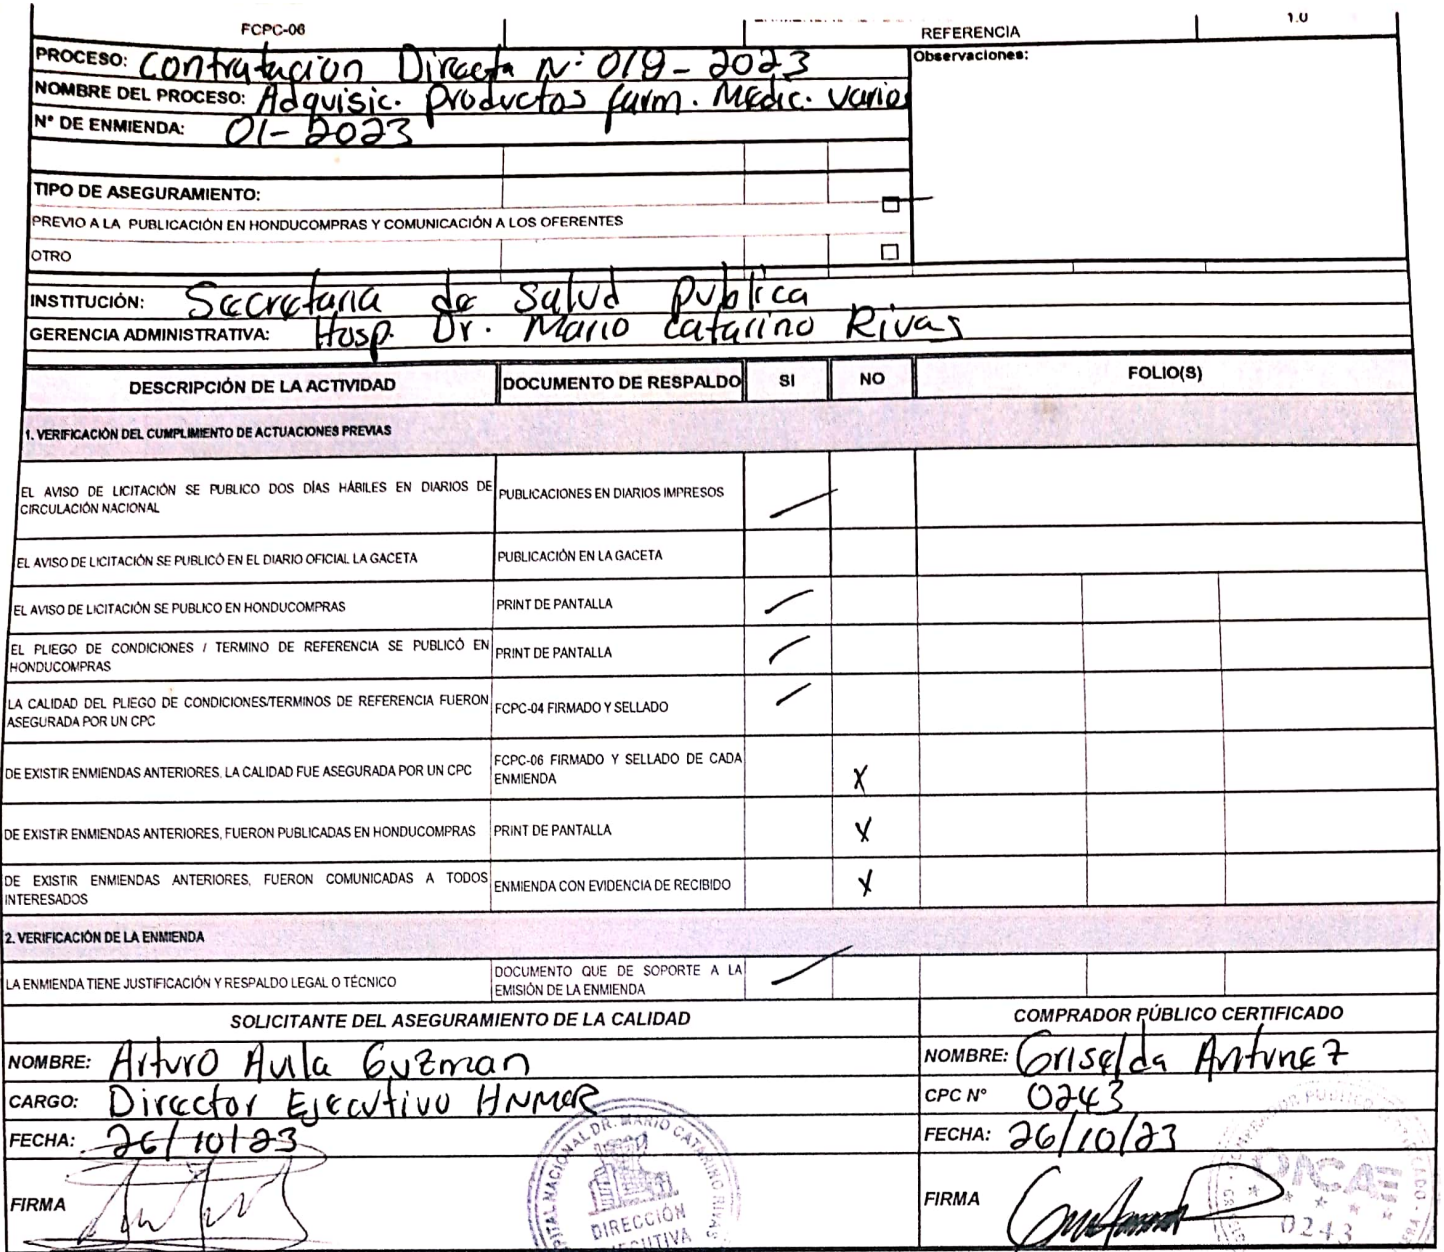 FCPC-06
REFERENCIA
1.0
PROCESO: Contratacion Directa N: 019-2023
Observaciones:
NOMBRE DEL PROCESO: Adquisic. productos farm. Medic. varios
N° DE ENMIENDA: 01-2023
TIPO DE ASEGURAMIENTO:
PREVIO A LA PUBLICACIÓN EN HONDUCOMPRAS Y COMUNICACIÓN A LOS OFERENTES
OTRO
INSTITUCIÓN: Secretaria de Salud Publica
GERENCIA ADMINISTRATIVA: Hosp. Dr. Mario Catarino Rivas
DESCRIPCIÓN DE LA ACTIVIDAD DOCUMENTO DE RESPALDO SI NO FOLIO(S)
1. VERIFICACIÓN DEL CUMPLIMIENTO DE ACTUACIONES PREVIAS
EL AVISO DE LICITACIÓN SE PUBLICO DOS DÍAS HÁBILES EN DIARIOS DE
CIRCULACIÓN NACIONAL
PUBLICACIONES EN DIARIOS IMPRESOS
EL AVISO DE LICITACIÓN SE PUBLICÓ EN EL DIARIO OFICIAL LA GACETA
PUBLICACIÓN EN LA GACETA
EL AVISO DE LICITACIÓN SE PUBLICO EN HONDUCOMPRAS
PRINT DE PANTALLA
EL PLIEGO DE CONDICIONES / TERMINO DE REFERENCIA SE PUBLICÓ EN
HONDUCOMPRAS
PRINT DE PANTALLA
LA CALIDAD DEL PLIEGO DE CONDICIONES/TERMINOS DE REFERENCIA FUERON
ASEGURADA POR UN CPC
FCPC-04 FIRMADO Y SELLADO
DE EXISTIR ENMIENDAS ANTERIORES, LA CALIDAD FUE ASEGURADA POR UN CPC
FCPC-06 FIRMADO Y SELLADO DE CADA
ENMIENDA
X
DE EXISTIR ENMIENDAS ANTERIORES, FUERON PUBLICADAS EN HONDUCOMPRAS
PRINT DE PANTALLA
X
DE EXISTIR ENMIENDAS ANTERIORES, FUERON COMUNICADAS A TODOS
INTERESADOS
ENMIENDA CON EVIDENCIA DE RECIBIDO
X
2. VERIFICACIÓN DE LA ENMIENDA
LA ENMIENDA TIENE JUSTIFICACIÓN Y RESPALDO LEGAL O TÉCNICO
DOCUMENTO QUE DE SOPORTE A LA
EMISIÓN DE LA ENMIENDA
SOLICITANTE DEL ASEGURAMIENTO DE LA CALIDAD
COMPRADOR PÚBLICO CERTIFICADO
NOMBRE: Arturo Avila Guzman
NOMBRE: Griselda Antunez
CARGO: Director Ejecutivo HNMCR
CPC N° 0243
FECHA: 26/10/23
FECHA: 26/10/23
FIRMA
FIRMA
DR. MARIO CATARINO RIVAS
DIRECCIÓN
0243